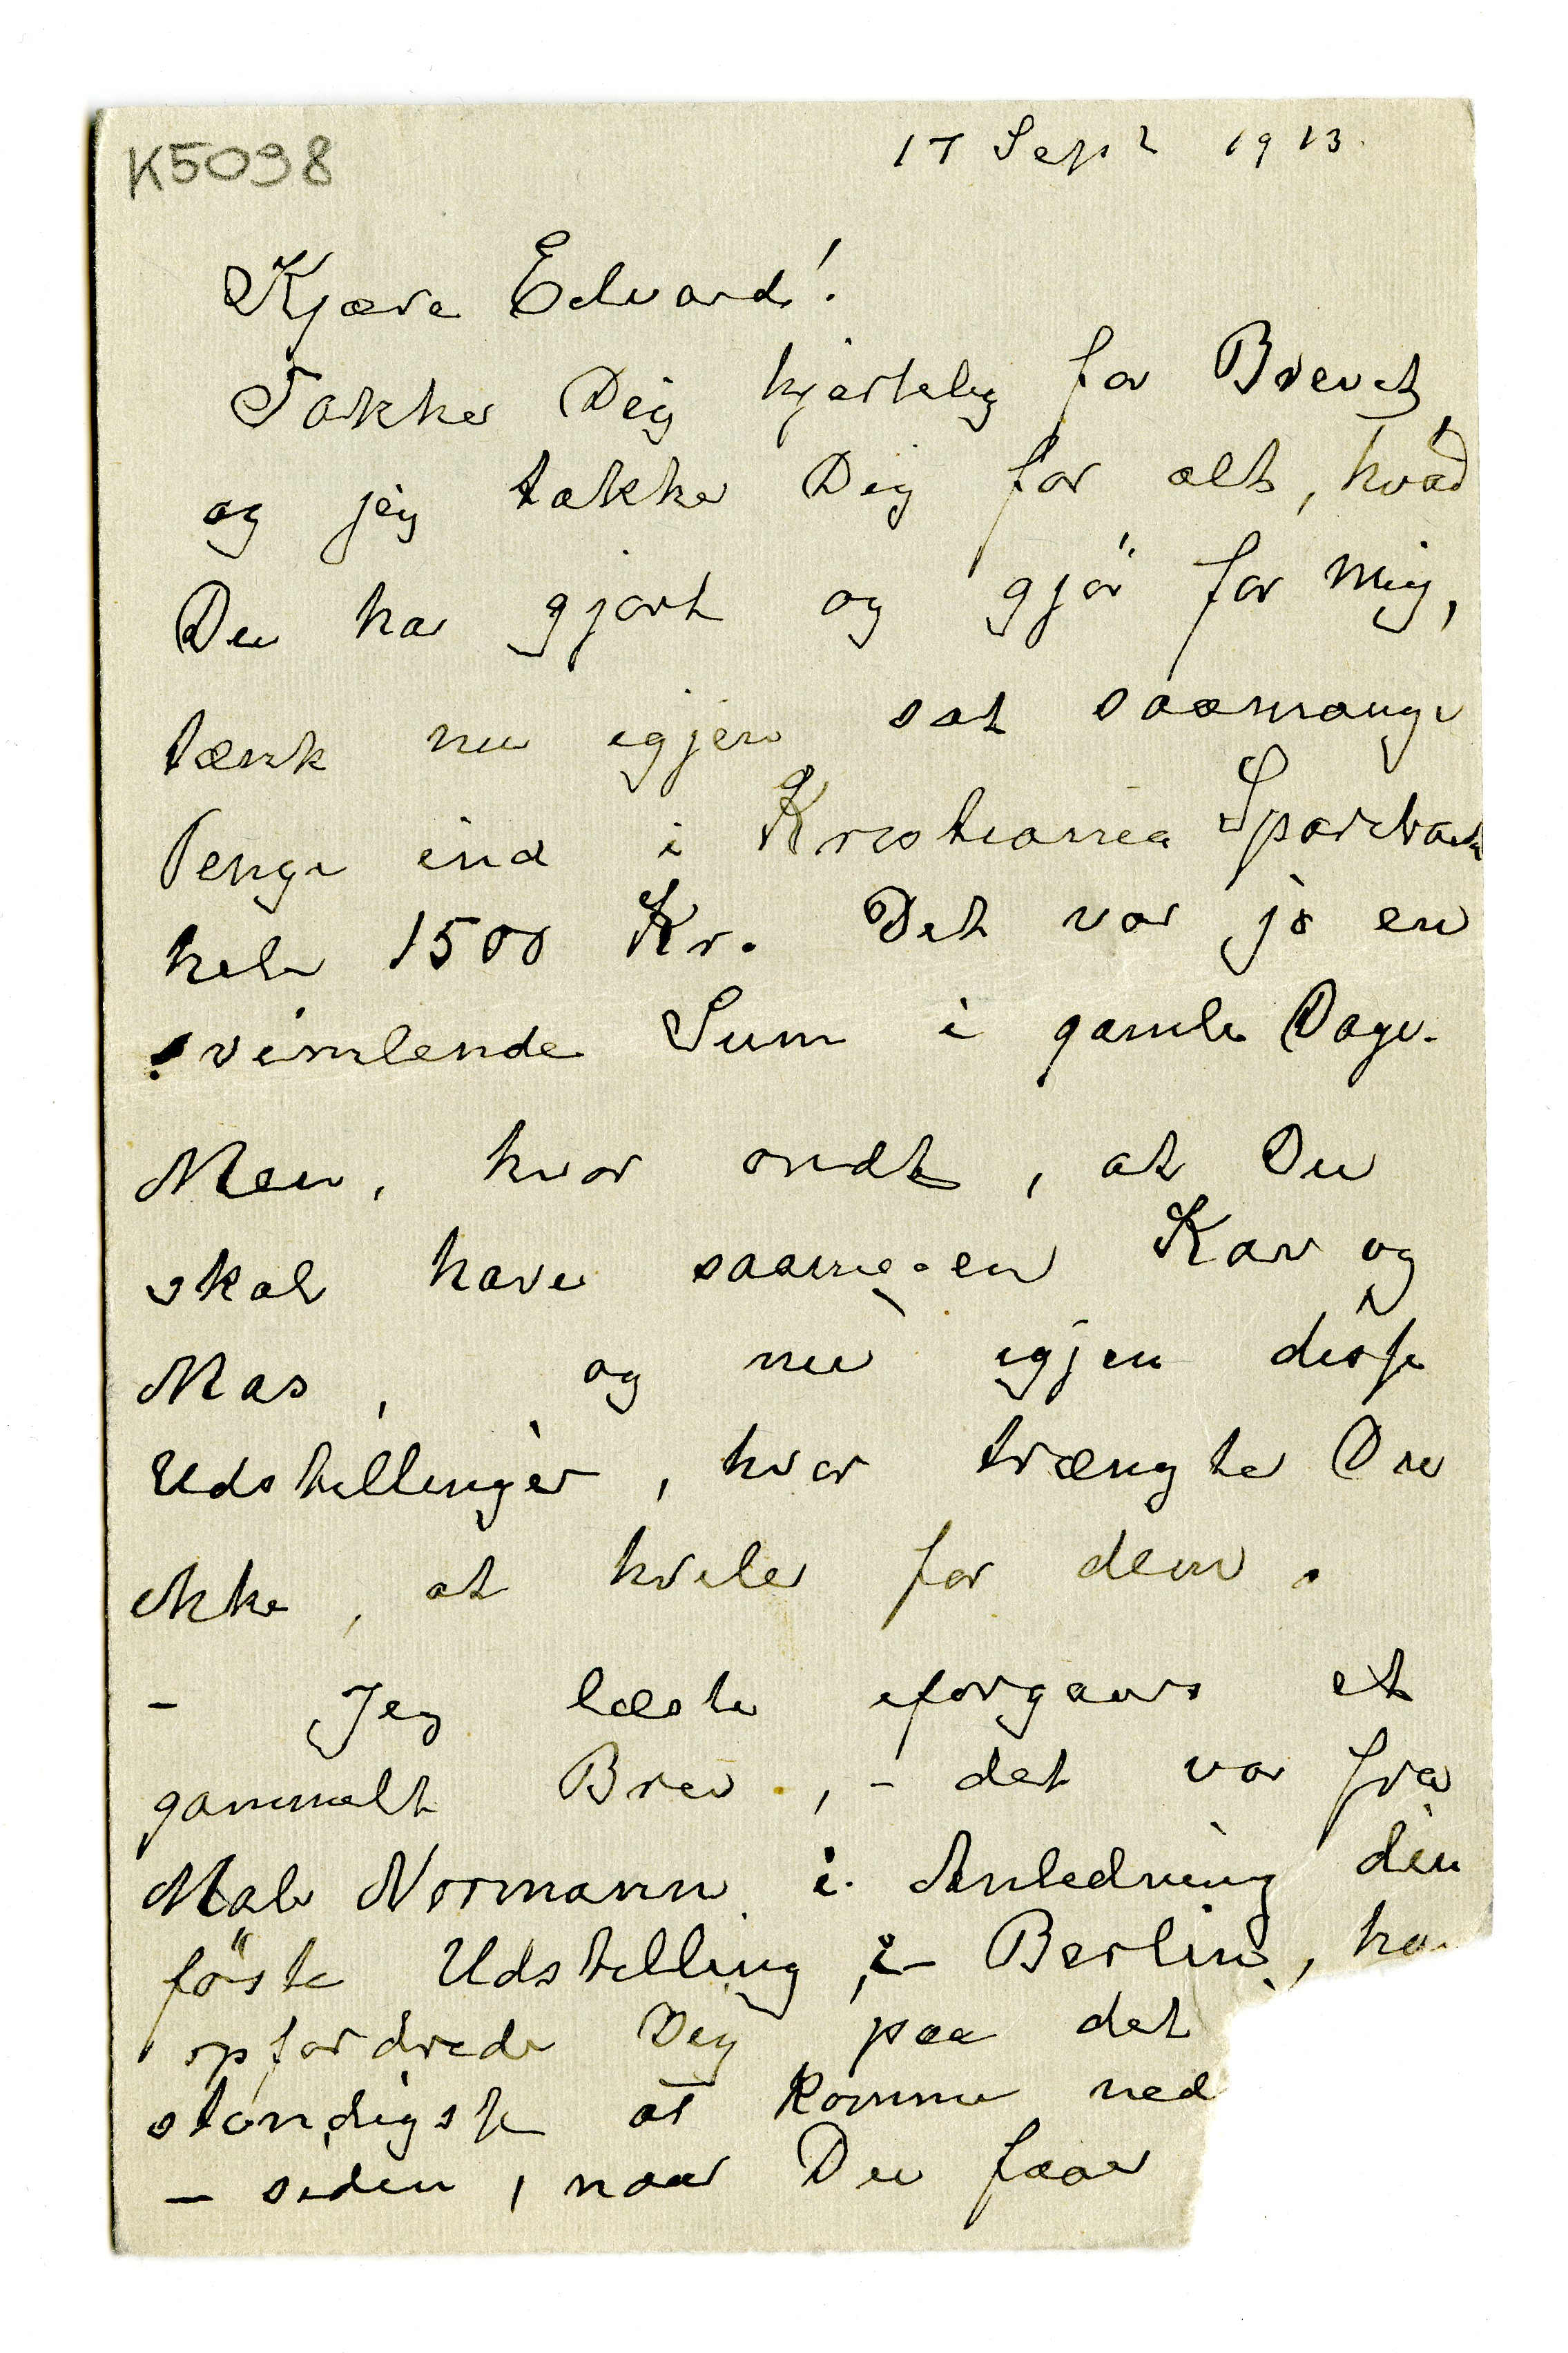 K5098
17 Sept 1913.
Kjære Edvard!
Takker Dig hjærtelig for Brevet,
og jeg takker Dig for alt, hvad
Du har gjort og gjör for mig,
tænk nu igjen sat saamange
Penge ind i Kristiania Sparebank
hele 1500 Kr. Det var jo en
svimlende Sum i gamle Dage.
Men, hvor ondt, at Du
skal have saamegen Kav og
Mas, og nu igjen disse
Udstillinger, hvor trængte Du
ikke, at hvile for dem.
- Jeg læste iforgaars et
gammelt Brev, - det var fra
Maler Normann i Anledning din
föste Udstilling i Berlin, ha
opfordrede Dig paa det
stændigste at komme ned
- siden, naar Du faar